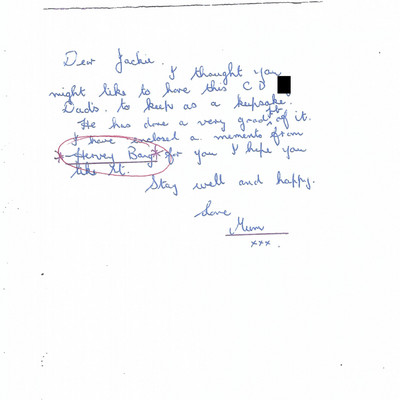 Dear Jackie.
I thought you
might like to have this CD
Dad's. to keep as a keepsake.
He has done a very good job of it.
I have enclosed a memento from
*Hervey Bay* for you I hope you
like it.
Stay well and happy.
Love
Mum
xxx.